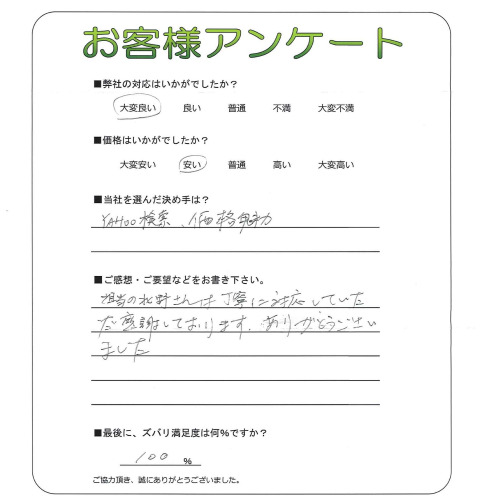 お客様アンケート
■弊社の対応はいかがでしたか？
大変良い 良い 普通 不満 大変不満
■価格はいかがでしたか？
大変安い 安い 普通 高い 大変高い
■当社を選んだ決め手は？
YAHOO検索、価格魅力
■ご感想・ご要望などをお書き下さい。
担当の北野さんは丁寧に対応していた
だ感謝しております。ありがとうござい
ました
■最後に、ズバリ満足度は何%ですか？
100 %
ご協力頂き、誠にありがとうございました。